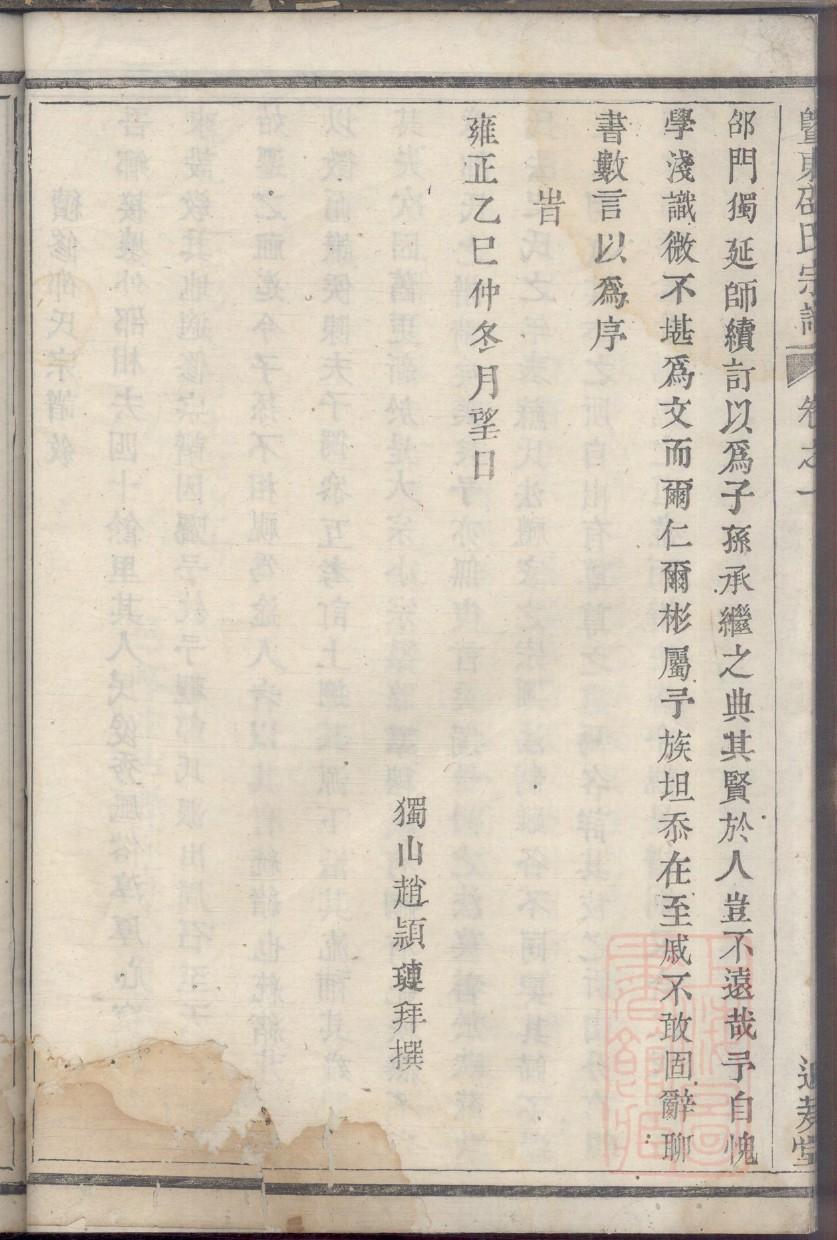 暨東邵氏宗譜 卷之一
邰門獨延師續訂以爲子孫承繼之典其賢於人豈不遠哉予自愧
學淺識微不堪爲文而爾仁爾彬屬予族坦忝在至戚不敢固辭聊
書數言以爲序
旹
雍正乙巳仲冬月望日
獨山趙頴璉拜撰